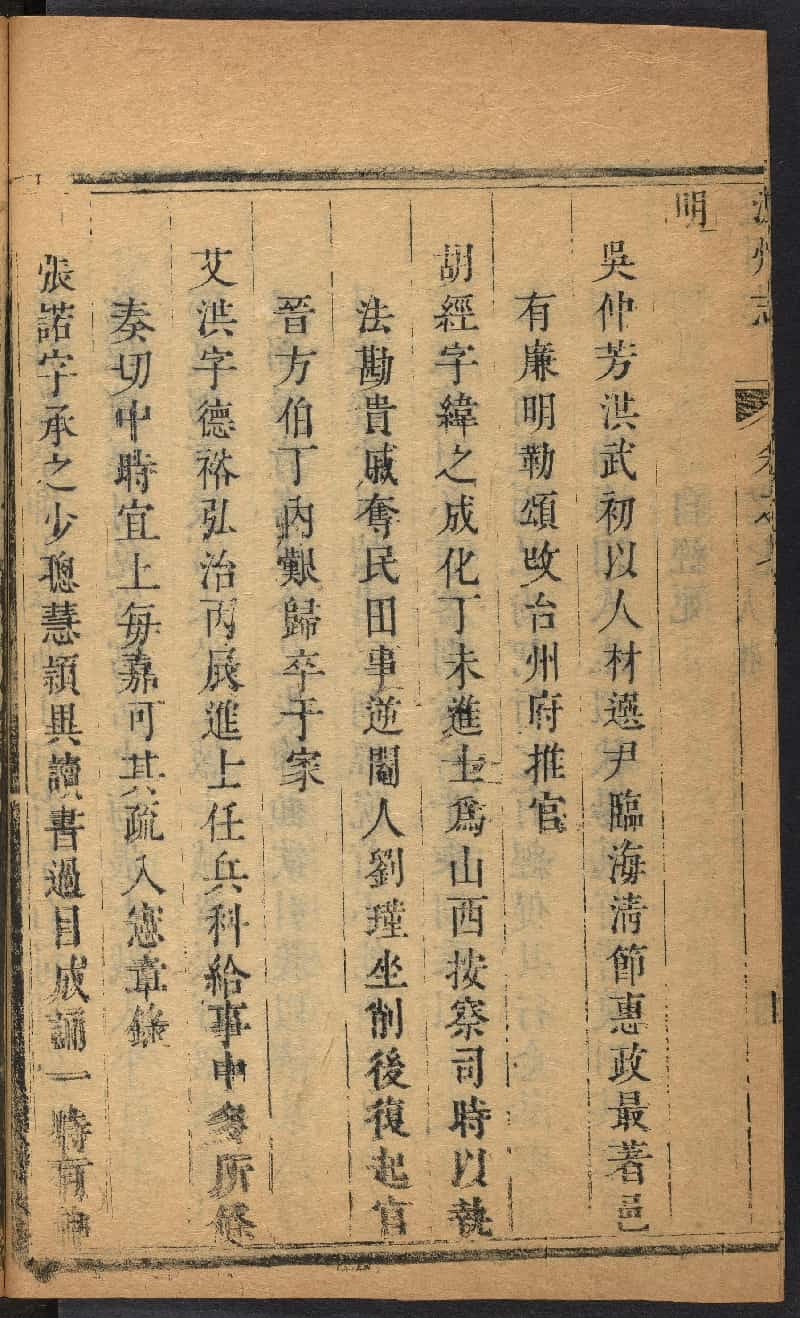 州志
明
吳仲芳洪武初以人材選尹臨海清節惠政最著邑
有廉明勒頌改台州府推官
胡經字緯之成化丁未進士爲山西按察司時以執
法勘貴戚奪民田事逆閹人劉瑾坐削後復起官
晉方伯丁內艱歸卒于家
艾洪字德裕弘治丙辰進士任兵科給事中多所條
奏切中時宜上每嘉可其疏入憲章錄
張諾字承之少聰慧穎異讀書過目成誦一時有神